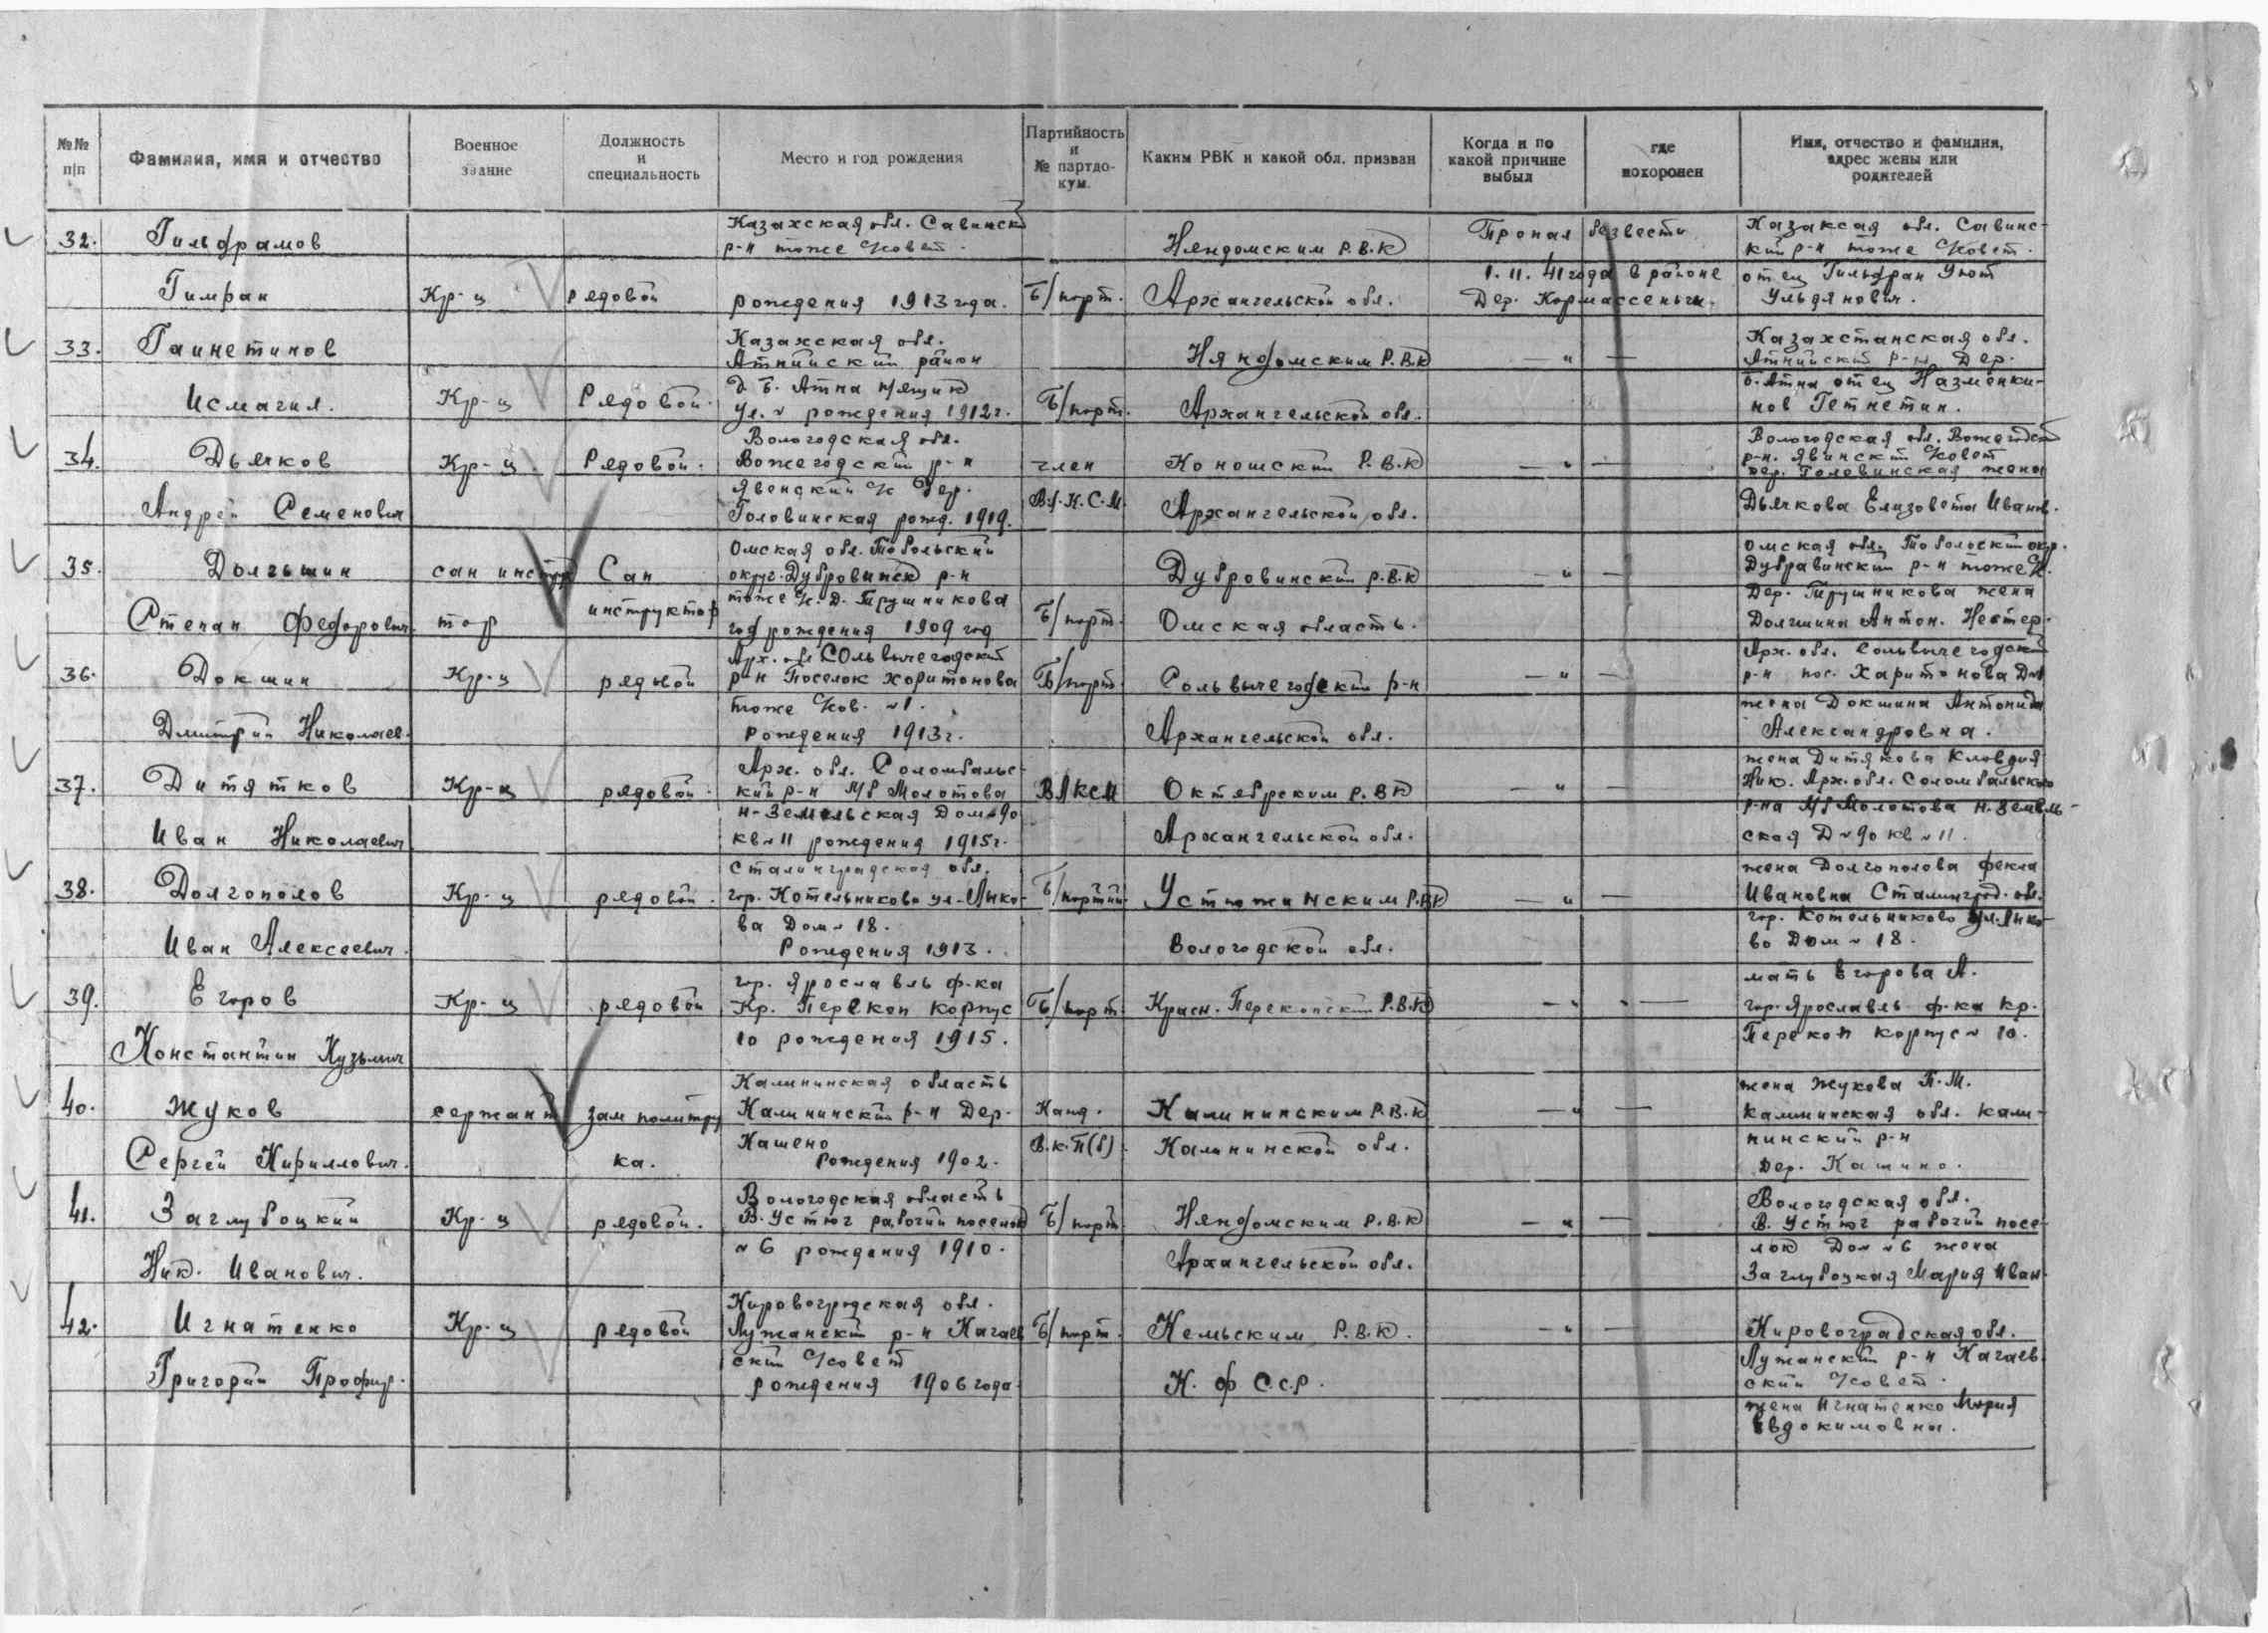 №№ п/п
Фамилия, имя и отчество
Военное звание
Должность и специальность
Место и год рождения
Партийность и № партдо-кум.
Каким РВК и какой обл. призван
Когда и по какой причине выбыл
где похоронен
Имя, отчество и фамилия, адрес жены или родителей
32. Гильфрамов Казахская обл. Савинск Няндомским Р.В.К Пропал безвести Казакская обл. Савинс-
р-н тоже с/совет кий р-н тоже с/совет.
Гимран Кр-ц рядовой рождения 1913 года. Б/парт. Архангельской обл. 1.11.41 года в районе отец Гильфран
Дер. Кормассельги. Ульдянович.
33. Гаинетинов Казахская обл. Няндомским Р.В.К — " — Казахстанская обл.
Атнинский район Атнинский р-н Дер.
Исмагил. Кр-ц Рядовой. д. Б. Атна Б/парт. Архангельской обл. Б. Атна отец
ул. № рождения 1912 г. нов Гетнетин.
34. Дьячков Кр-ц Рядовой. Вологодская обл. член Коношский Р.В.К — " — Вологодская обл. Вожегодск
Вожегодский р-н р-н. Явинский с/совет
Явенский с/с Дер. В.Л.К.С.М. дер. Головинская жена
Андрей Семенович Головинская рожд. 1919. Архангельской обл. Дьячкова Елизовета Иванов.
35. Долгьшин сан инструк Сан Омская обл. Тобольский Дубровинский р.В.К — " — Омская обл. Тобольский окр.
округ. Дубровинск р-н Дубравинский р-н тоже с/с.
Степан Федорович тор инструктор тоже с/с. Д. Трушникова Б/парт. Омская область. Дер. Трушникова жена
год рождения 1909 год Долгшина Антон. Нестер.
36. Докшин Кр-ц рядвой Арх. обл Сольвычегодский Б/парт. Сольвычегодский р-н — " — Арх. обл. Сольвычегодский
р-н Поселок Харитонова р-н пос. Харитонова
тоже с/сов. №1. жена Докшина Антонида
Дмитрий Николаев. рождения 1913 г. Архангельской обл. Александровна.
37. Дитятков Кр-ц рядовой. Арх. обл. Соломбальс- ВЛКСМ Октябрским Р.В.К — " — жена Дитякова Клавдия
кий р-н М/б Молотова Ник. Арх. обл. Соломбальского
Н-Земельская Дом №90 р-на М/б Молотова Н. Земель-
Иван Николаевич кв № 11 рождения 1915 г. Архангельской обл. ская Д № 90 кв № 11.
38. Долгополов Кр-ц рядовой. Сталинградская обл. Б/партий Устюжинским Р.ВК — " — жена Долгополова Фекла
гор. Котельниково ул-Лыко- Ивановна Сталинград. обл.
ва Дом № 18. гор. Котельниково
Иван Алексеевич. Рождения 1913. Вологодской обл. во Дом № 18.
39. Егоров Кр-ц рядовой гор. Ярославль ф-ка Б/парт Красн. Перекопский Р.В.К — " — мать Егорова А.
Кр. Перекоп корпус гор. Ярославль ф-ка Кр.
Константин Кузьмич 10 рождения 1915. Перекоп корпус № 10.
40. Жуков сержант зам политру Калининская область Канд. Калининским Р.В.К — " — жена Жукова П.М.
Калининский р-н Дер. Калининская обл. Кали-
Кашено В.К.П(б). нинский р-н
Сергей Кириллович. ка. Рождения 1902. Калининской обл. Дер. Кашино.
41. Заглубоцкий Кр-ц рядовой. Вологодская область Б/парт Няндомским Р.В.К — " — Вологодская обл.
В. Устюг рабочий поселок В. Устюг рабочий посе-
№ 6 рождения 1910. лок Дом № 6 жена
Ник. Иванович. Архангельской обл. Заглубоцкая Мария Иван.
42. Игнатенко Кр-ц рядовой Кировоградская обл. Б/парт. Кемьским Р.В.К. — " — Кировоградская обл.
Лужанский р-н Кагаев Лужанский р-н Кагаев
ский с/совет ский с/совет.
Григорий Профир. рождения 1906 года. К. ф С.С.Р. жена Игнатенко Мария
Евдокимовна.